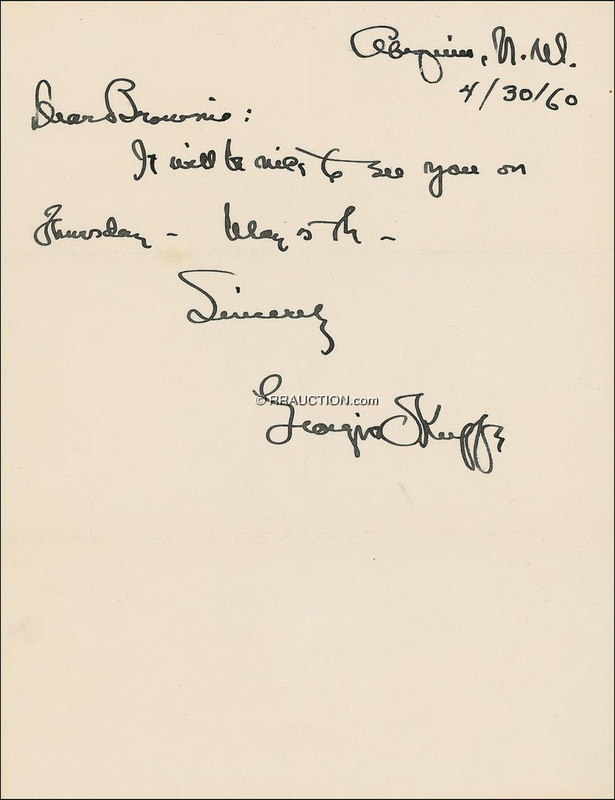 Abiquiu, N.M.
4/30/60
Dear Brownie:
It will be nice to see you on
Thursday - May 5th -
Sincerely
© RRAUCTION.com
Georgia O'Keeffe